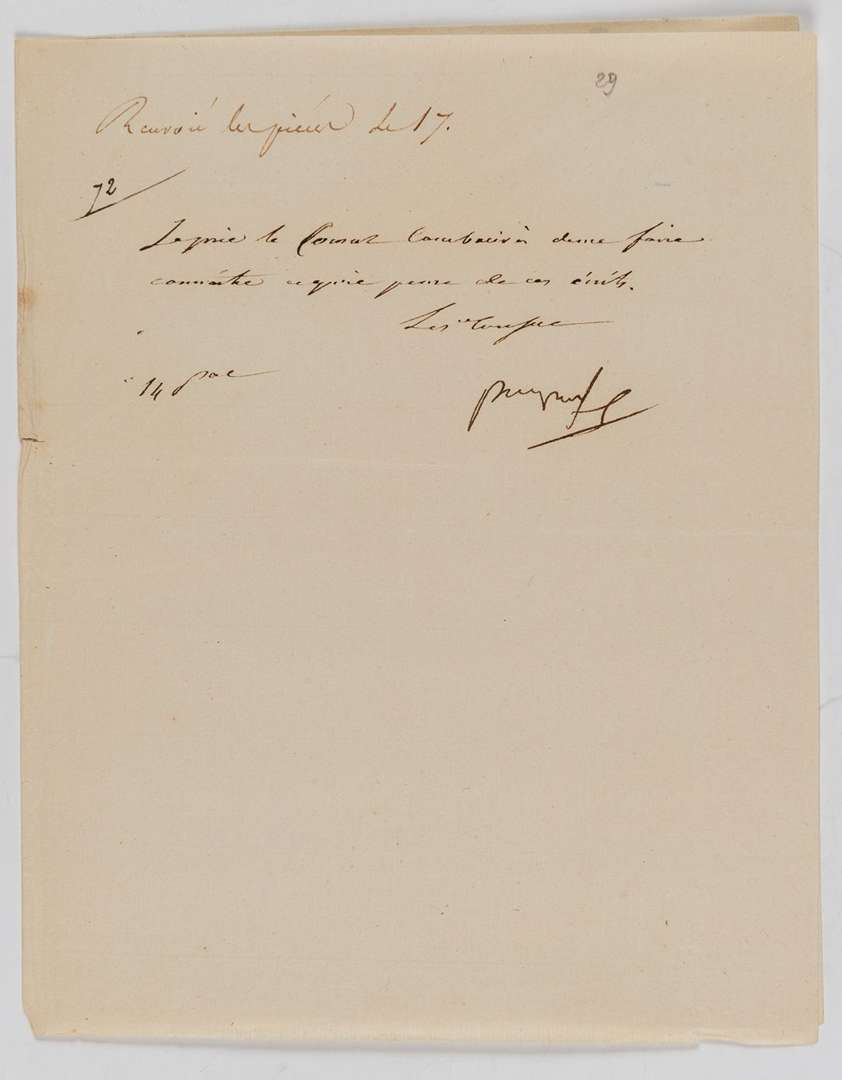 29
Renvoié les pièces le 17.
72
Je prie le Consul Cambacérès de me faire
connaitre ce qu'il pense de ces écrits.
Le 1er Consul
14